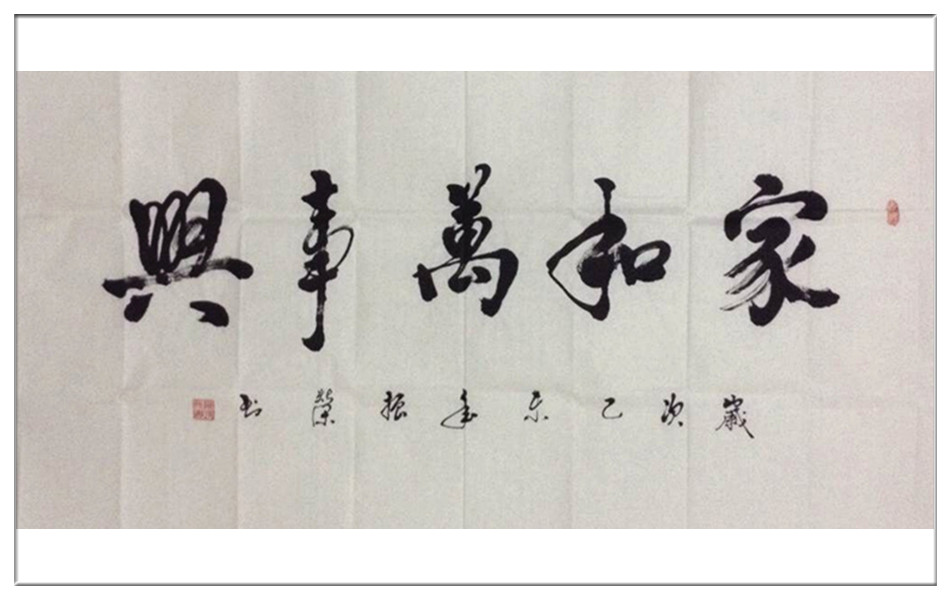 家和萬事興
歲次乙未年振榮书